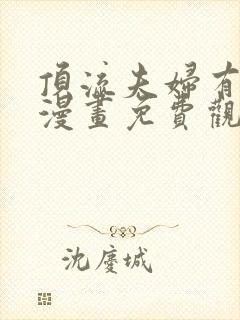 頂流夫婦有
漫畫免費觀
沈慶城